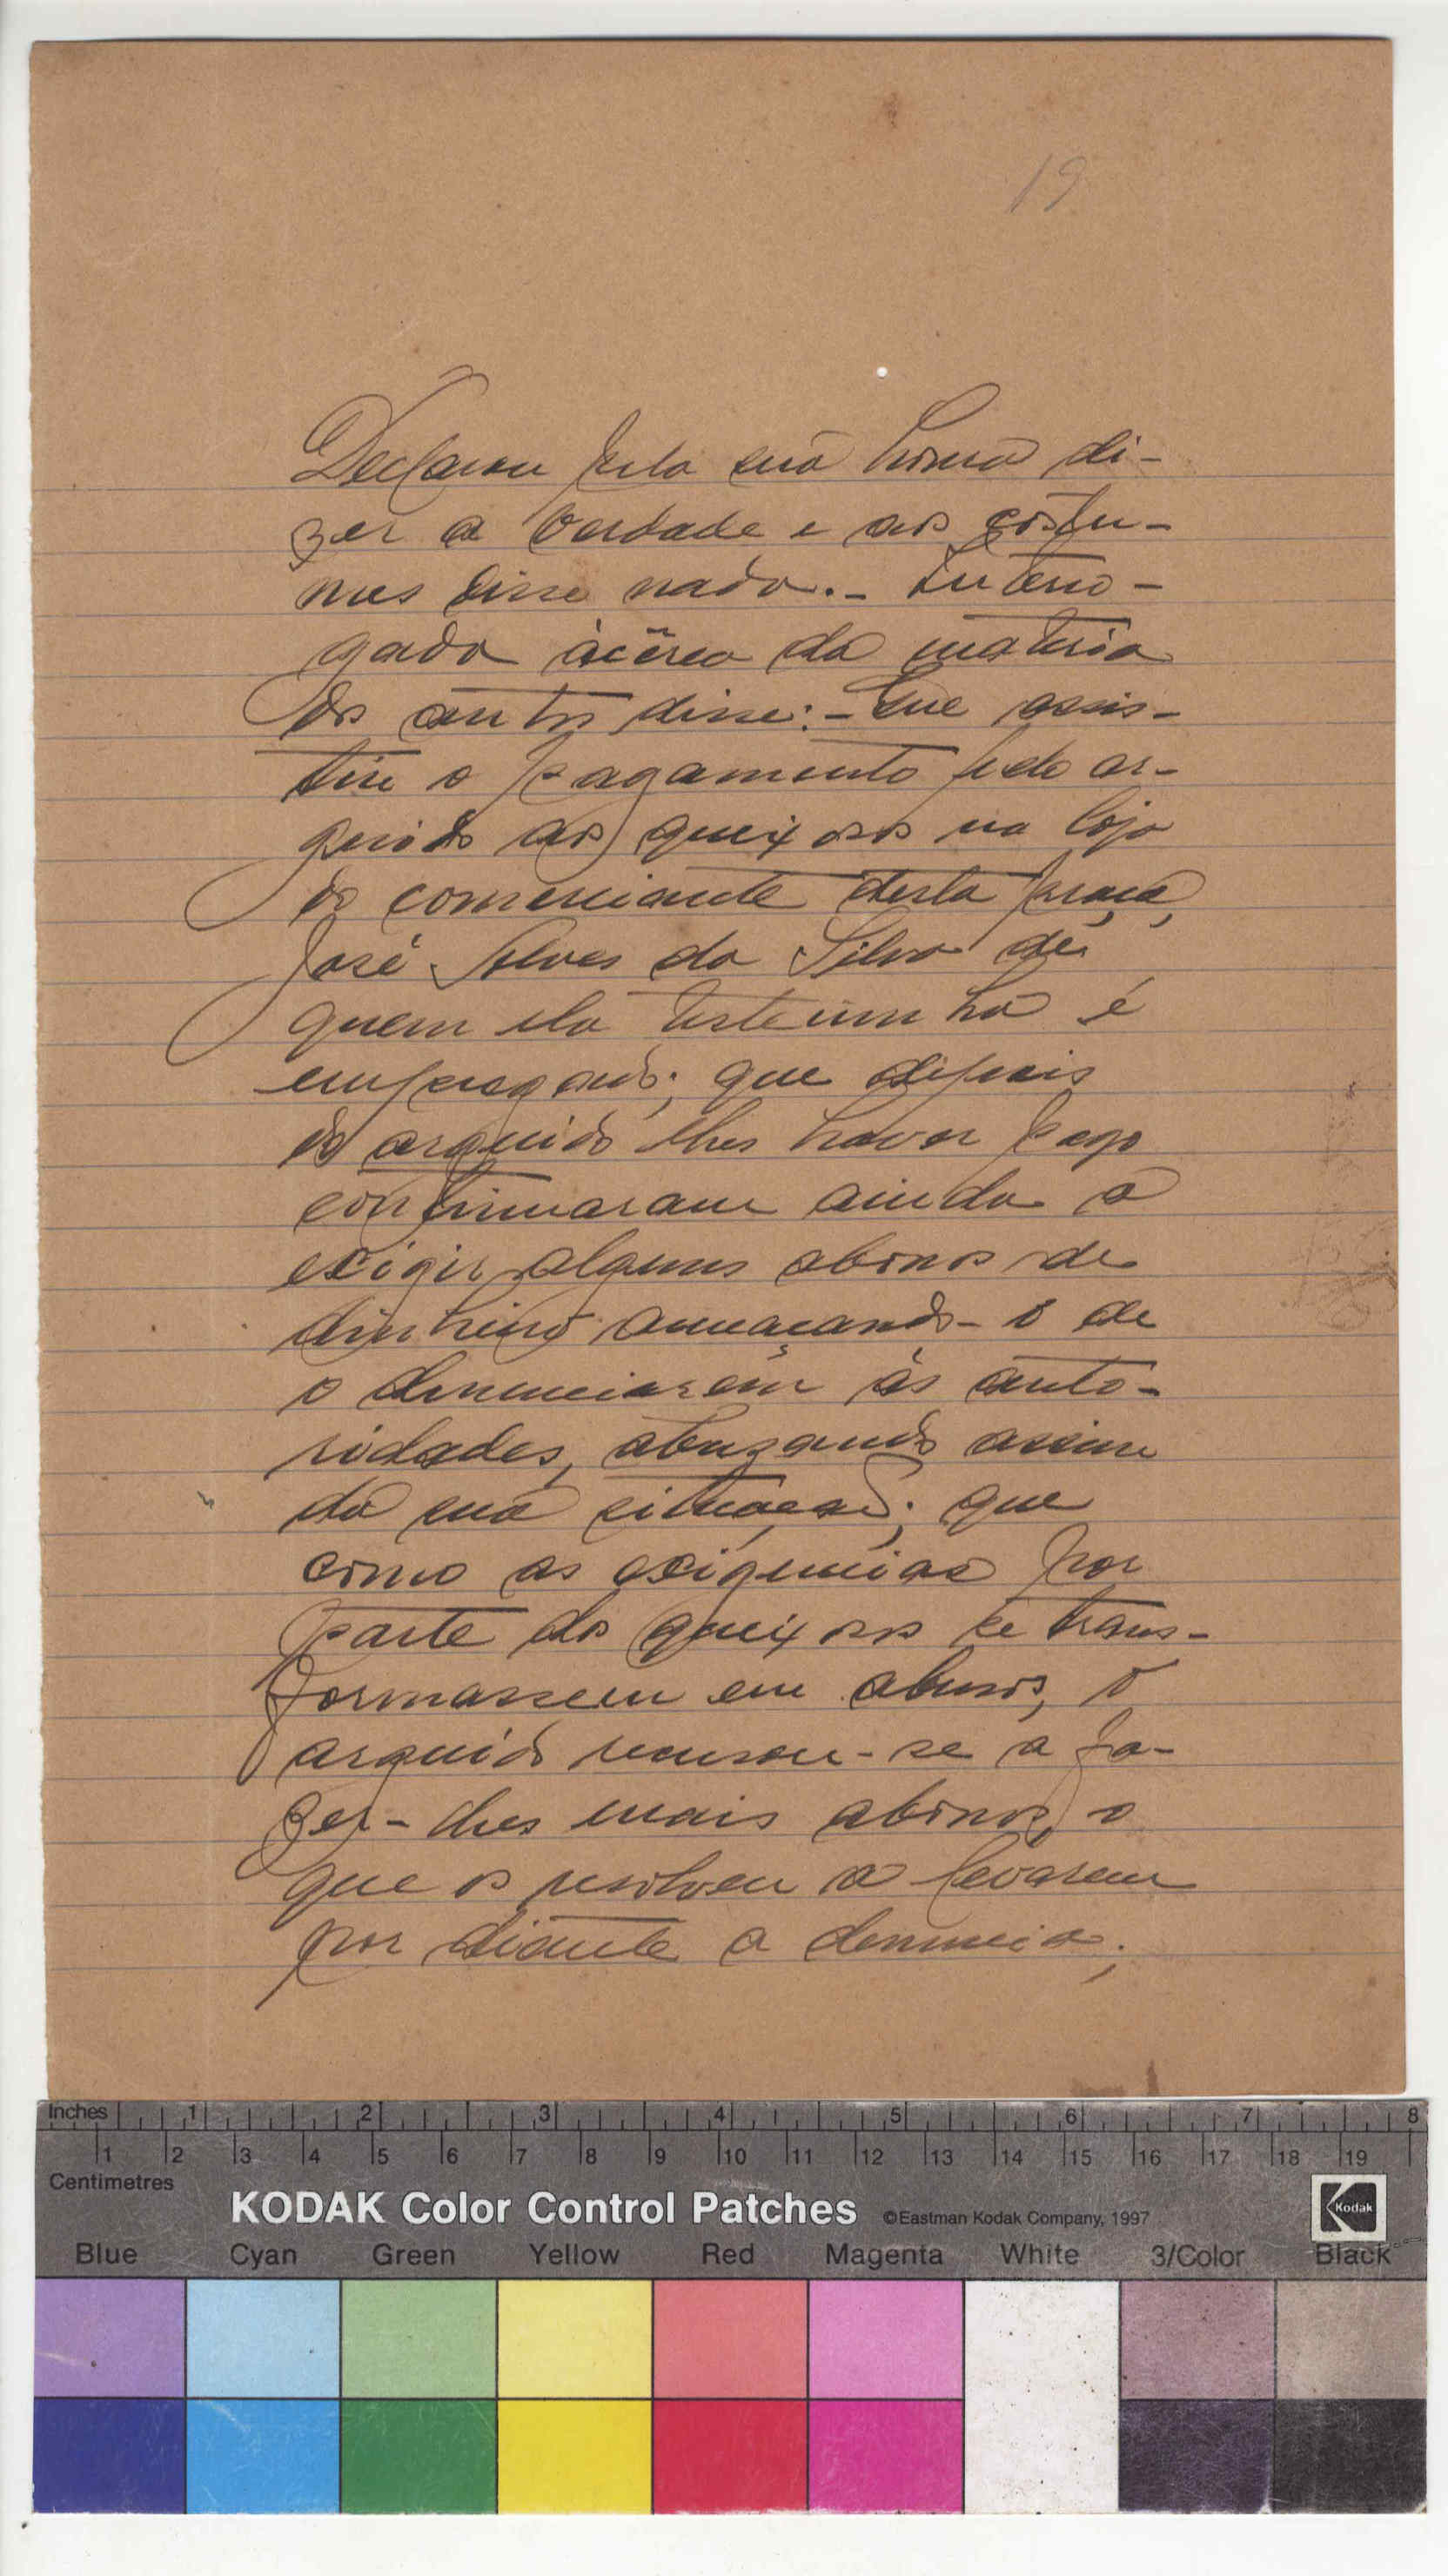 19
Declarou pela sua honra di-
zer a verdade e aos costu-
mes disse nada.- Interro-
gado àcêrca da materia
dos autos disse:- Que assis-
tiu o pagamento pelo ar-
guido aos queixosos na loja
do comerciante desta praça,
José Alves da Silva de
quem ela testemunha é
empregado; que depois
do arguido lhes haver pago
continuaram ainda a
exigir alguns abonos de
dinheiro ameaçando-o de
o denunciarem às auto-
ridades, abuzando assim
da sua situação; que
como as exigencias por
parte dos queixosos se trans-
formassem em abusos, o
arguido recusou-se a fa-
zer-lhes mais abonos, o
que os resolveu a levarem
por diante a denuncia;
Inches 1 2 3 4 5 6 7 8
1 2 3 4 5 6 7 8 9 10 11 12 13 14 15 16 17 18 19
Centimetres
KODAK Color Control Patches ©Eastman Kodak Company, 1997 Kodak
Blue Cyan Green Yellow Red Magenta White 3/Color Black